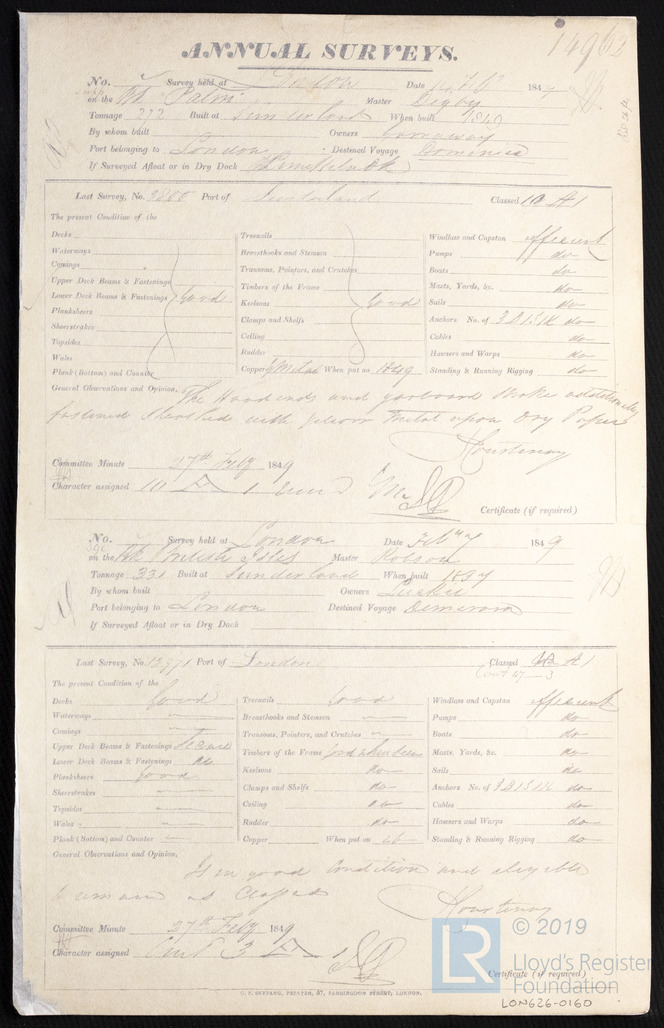 14962
ANNUAL SURVEYS.
No. Survey held at London Date Feb 1849
on the Palm Master Digby
Tonnage 272 Built at Sunderland When built 1840
By whom built Owners
Port belonging to London Destined Voyage Dominica
If Surveyed Afloat or in Dry Dock
Last Survey, No. 3800 Port of Sunderland Classed 10 A 1
The present Condition of the
Decks Treenails Windlass and Capstan efficient
Waterways Breasthooks and Stemson Pumps do
Comings Transoms, Pointers, and Crutches Boats do
Upper Deck Beams & Fastenings Timbers of the Frame Masts, Yards, &c. do
Lower Deck Beams & Fastenings Good Keelsons Good Sails do
Planksheers Clamps and Shelfs Anchors No. of 3 B 1 S 1 K do
Sheerstrakes Ceiling Cables do
Topsides Rudder Hawsers and Warps do
Wales Copper Y Metal When put on 1849 Standing & Running Rigging do
Plank (Bottom) and Counter
General Observations and Opinion, The Hood ends and garboard strake additionally
fastened & sheathed with yellow Metal upon Dry Paper
Courtenay
Committee Minute 27th Feby 1849
Character assigned 10 A 1
Certificate (if required)
No. Survey held at London Date Feby 1849
on the British Isles Master Robson
Tonnage 331 Built at Sunderland When built 1837
By whom built Owners
Port belonging to London Destined Voyage Demerara
If Surveyed Afloat or in Dry Dock
Last Survey, No. Port of London Classed A 1
Cont 47 — 3
The present Condition of the
Decks Good Treenails Good Windlass and Capstan efficient
Waterways Breasthooks and Stemson Pumps do
Comings Transoms, Pointers, and Crutches Boats do
Upper Deck Beams & Fastenings Timbers of the Frame Masts, Yards, &c. do
Lower Deck Beams & Fastenings do Keelsons do Sails do
Planksheers Good Clamps and Shelfs do Anchors No. of 3 B 1 S 1 K do
Sheerstrakes Ceiling do Cables do
Topsides Rudder do Hawsers and Warps do
Wales Copper When put on Standing & Running Rigging do
Plank (Bottom) and Counter
General Observations and Opinion,
Is in good Condition and eligible
to remain as Classed
Courtenay
Committee Minute 27th Feby 1849
Character assigned Cont 3 A 1
Certificate (if required)
LR © 2019
Lloyd's Register
Foundation
LON626-0160